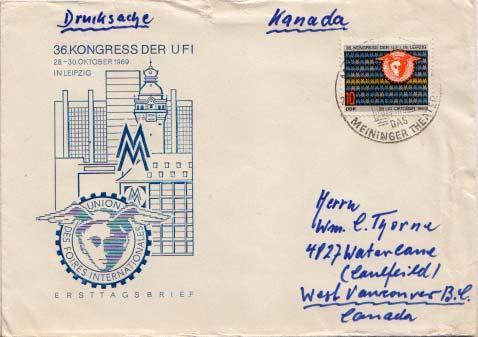 Drucksache
Kanada
36. KONGRESS DER UFI
28.-30. OKTOBER 1969
IN LEIPZIG
36. KONGRESS DER UFI IN LEIPZIG
10
DDR
DAS
MEININGER THEATER
UNION
DES FOIRES INTERNATIONALES
ERSTTAGSBRIEF
Herrn
Wm. C. Thorne
4827 Water Lane
(Caulfeild)
West Vancouver B.C.
Canada